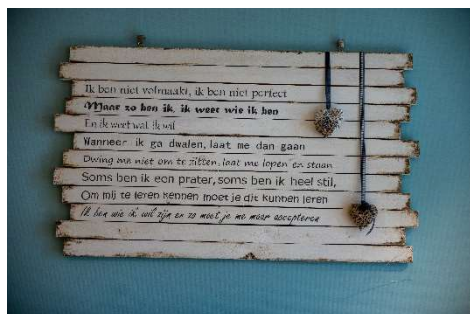 Ik ben niet volmaakt, ik ben niet perfect
Maar zo ben ik, ik weet wie ik ben
En ik weet wat ik wil
Wanneer ik ga dwalen, laat me dan gaan
Dwing me niet om te zitten, laat me lopen en staan
Soms ben ik een prater, soms ben ik heel stil,
Om mij te leren kennen moet je dit kunnen leren
Ik ben wie ik wil zijn en zo moet je me maar accepteren